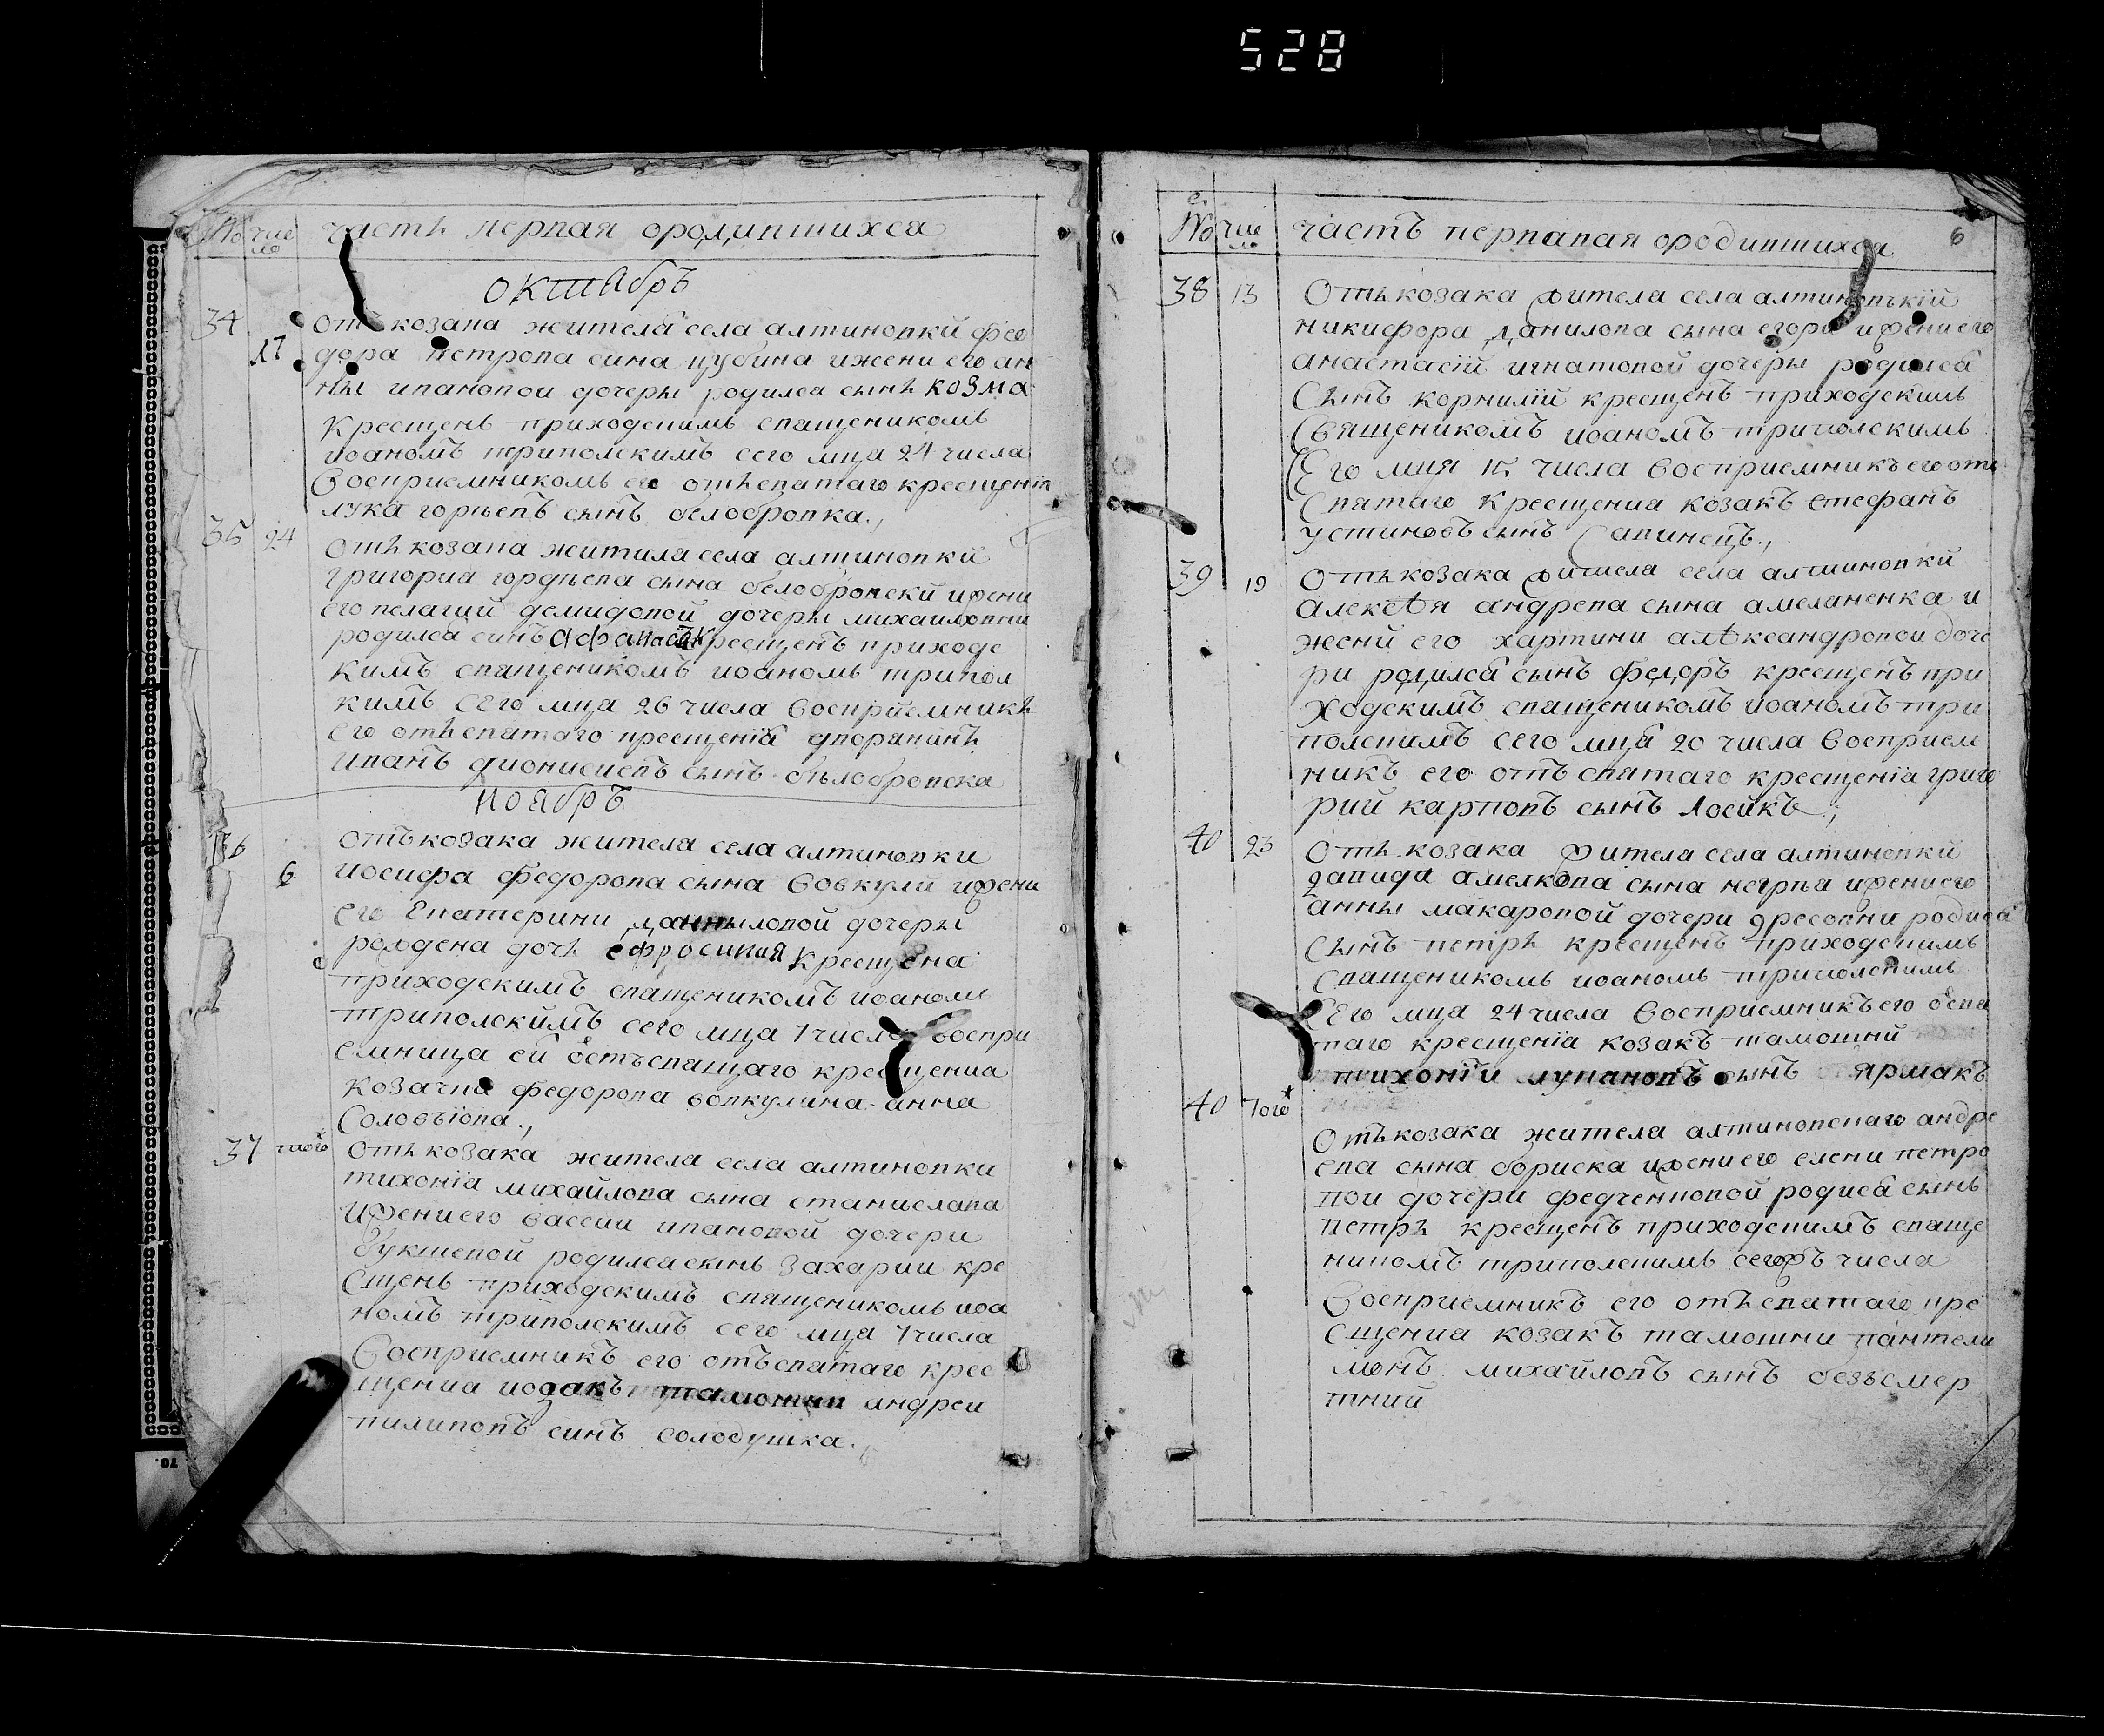 528
№ чис
ло
часть первая ородившихся
октябрь
34
17
отъ козака жителя села алтиновки фео
дора петрова сина цубина ижени его ан
ны ивановои дочеры родился сынъ козма
крещенъ приходскимъ священикомъ
иоаномъ триполскимъ сего мца 24 числа
Восприемникомъ его отъ святаго крещенія
лука гордѣевъ сынъ белобровка.,
35 24
отъ козака житиля села алтиновки
григория гордѣева сына белобровски ижени
его пелагии демидовой дочеры михаиловни
родился синъ афанасій крещенъ приходс
кимъ священикомъ иоаномъ трипол
кимъ сего мца 26 числа восприемникъ
его отъ святаго крещенія дворянинъ
иванъ дионисиевъ сынъ бѣлобровска
ноябрь
36
6
отъ козака жителя села алтиновки
иосифа федорова сына вовкули ижени
его екатерини даниловой дочеры
рождена дочъ ефросиния крещена
приходскимъ священикомъ иоаномъ
триполскимъ сего мца 7 числа воспри
емница ей отъ святаго крещения
козачка федорова вовкулина анна
Соловъіова.,
37 того
отъ козака жителя села алтиновки
тихонія михайлова сына станислава
ижени его вассии ивановой дочери
букшевой родился синъ захарии кре
щенъ приходскимъ священикомъ иоа
номъ триполскимъ сего мца 7 числа
Восприемникъ его отъ святаго крес
щения козакъ тамошни андреи
пилиповъ синъ солодушка.,
№ чис
ло
часть перпавая ородившихся
6
38 13
Отъ козака жителя села алтиновъкій
никифора данилова сына егора ижени его
анастасій игнатовой дочеры родился
Сынъ корнилій крещенъ приходскимъ
Священикомъ иоаномъ триполскимъ
Сего мця 15 числа восприемникъ его отъ
Святаго крещения козакъ стефанъ
устиновъ сынъ Савинецъ.,
39 19
Отъ козака жителя села алтиновки
алексѣя андреева сына амеляненка и
жени его хартини алѣксандровои доче
ри родился сынъ федоръ крещенъ при
ходскимъ священикомъ иоаномъ три
полскимъ сего мца 20 числа восприем
никъ его отъ святаго крещенія григо
рий карповъ сынъ Лосикъ.,
40 23
Отъ козака жителя села алтиновки
давида амелкова сына негрѣя ижени его
анны макаровой дочери родися
Сынъ петръ крещенъ приходскимъ
Священикомъ иоаномъ триполскимъ
Сего мца 24 числа восприемникъ его о свя
таго крещенія козакъ тамошни
тихоній лукановъ сынъ ярмакъ
40 Того
Отъ козака жителя алтиновскаго андре
ева сына бориска ижени его елени петро
вои дочери федченковой родися сынъ
петръ крещенъ приходскимъ свяще
никомъ триполскимъ сегожъ числа
Восприемникъ его отъ святаго кре
щения козакъ тамошни пантели
монъ михайловъ сынъ безсмер
тний